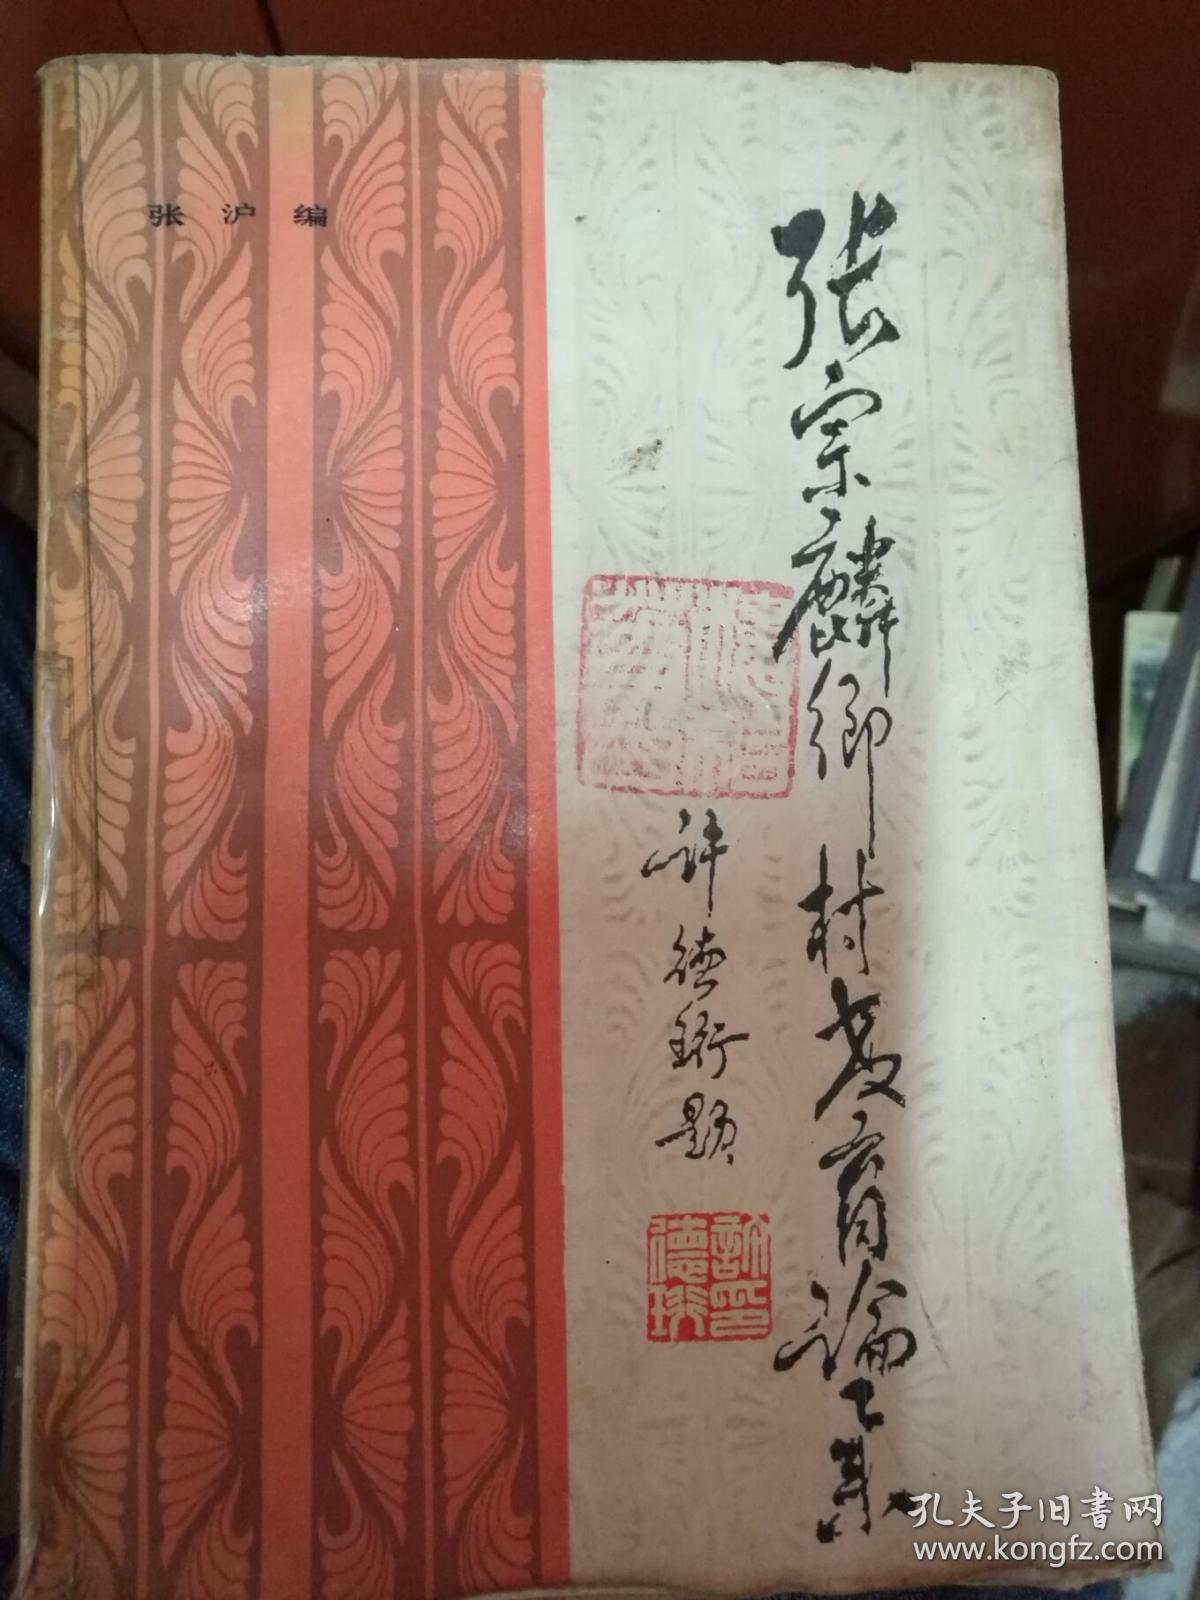 张沪编
张宗麟乡村教育論集
许德珩题
許德珩印
孔夫子旧書网
www.kongfz.com